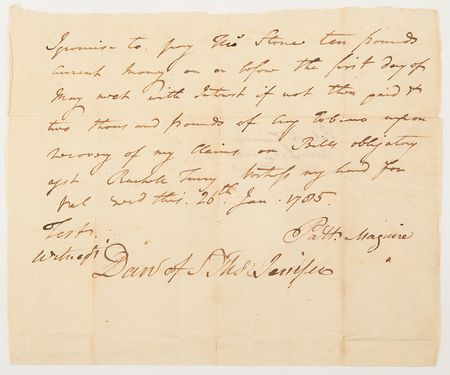 I promise to pay Thos Stone ten pounds
Current Money on or before the first day of
May next with Interest if not then paid &
two thousand pounds of Crop Tobacco upon
recovery of my Claims on Bills obligatory
agst Rachell Witness my hand for
Val recd this 26th Jan. 1785.
Test
Witness Patk Maguire
Danl of St Thos Jenifer